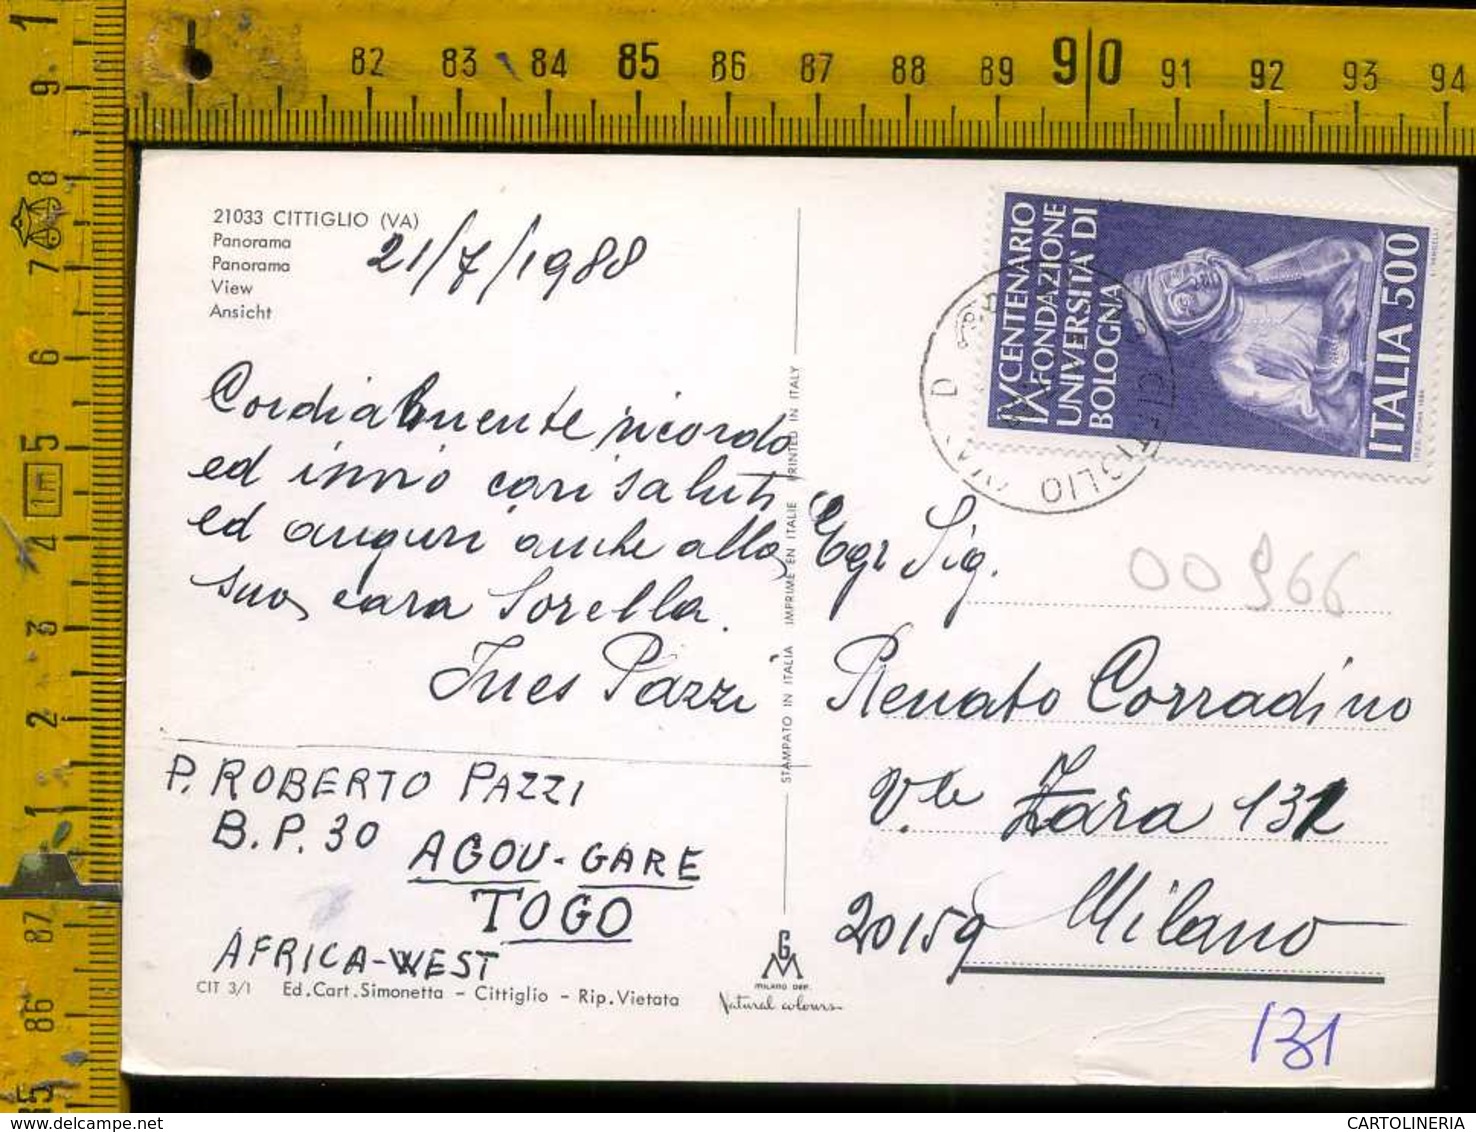 82 83 84 85 86 87 88 89 90 91 92 93 94
1
9
8
7
6
5
1m
4
3
2
1
87
86
85
21033 CITTIGLIO (VA)
Panorama
Panorama
View
Ansicht
21/7/1988
Cordialmente ricordo
ed invio cari saluti
ed auguri anche alla
sua cara Sorella.
Ines Pazzi
P. ROBERTO PAZZI
B.P. 30
AGOU-GARE
TOGO
AFRICA-WEST
CIT 3/1 Ed.Cart.Simonetta - Cittiglio - Rip.Vietata
STAMPATO IN ITALIA IMPRIME EN ITALIE PRINTED IN ITALY
GM
MILANO DEP.
Natural colours
IX CENTENARIO
FONDAZIONE
UNIVERSITA' DI
BOLOGNA
ITALIA 500
CITTIGLIO (VA) D
00966
Egr Sig.
Renato Corradino
V.le Zara 131
20159 Milano
131
CARTOLINERIA